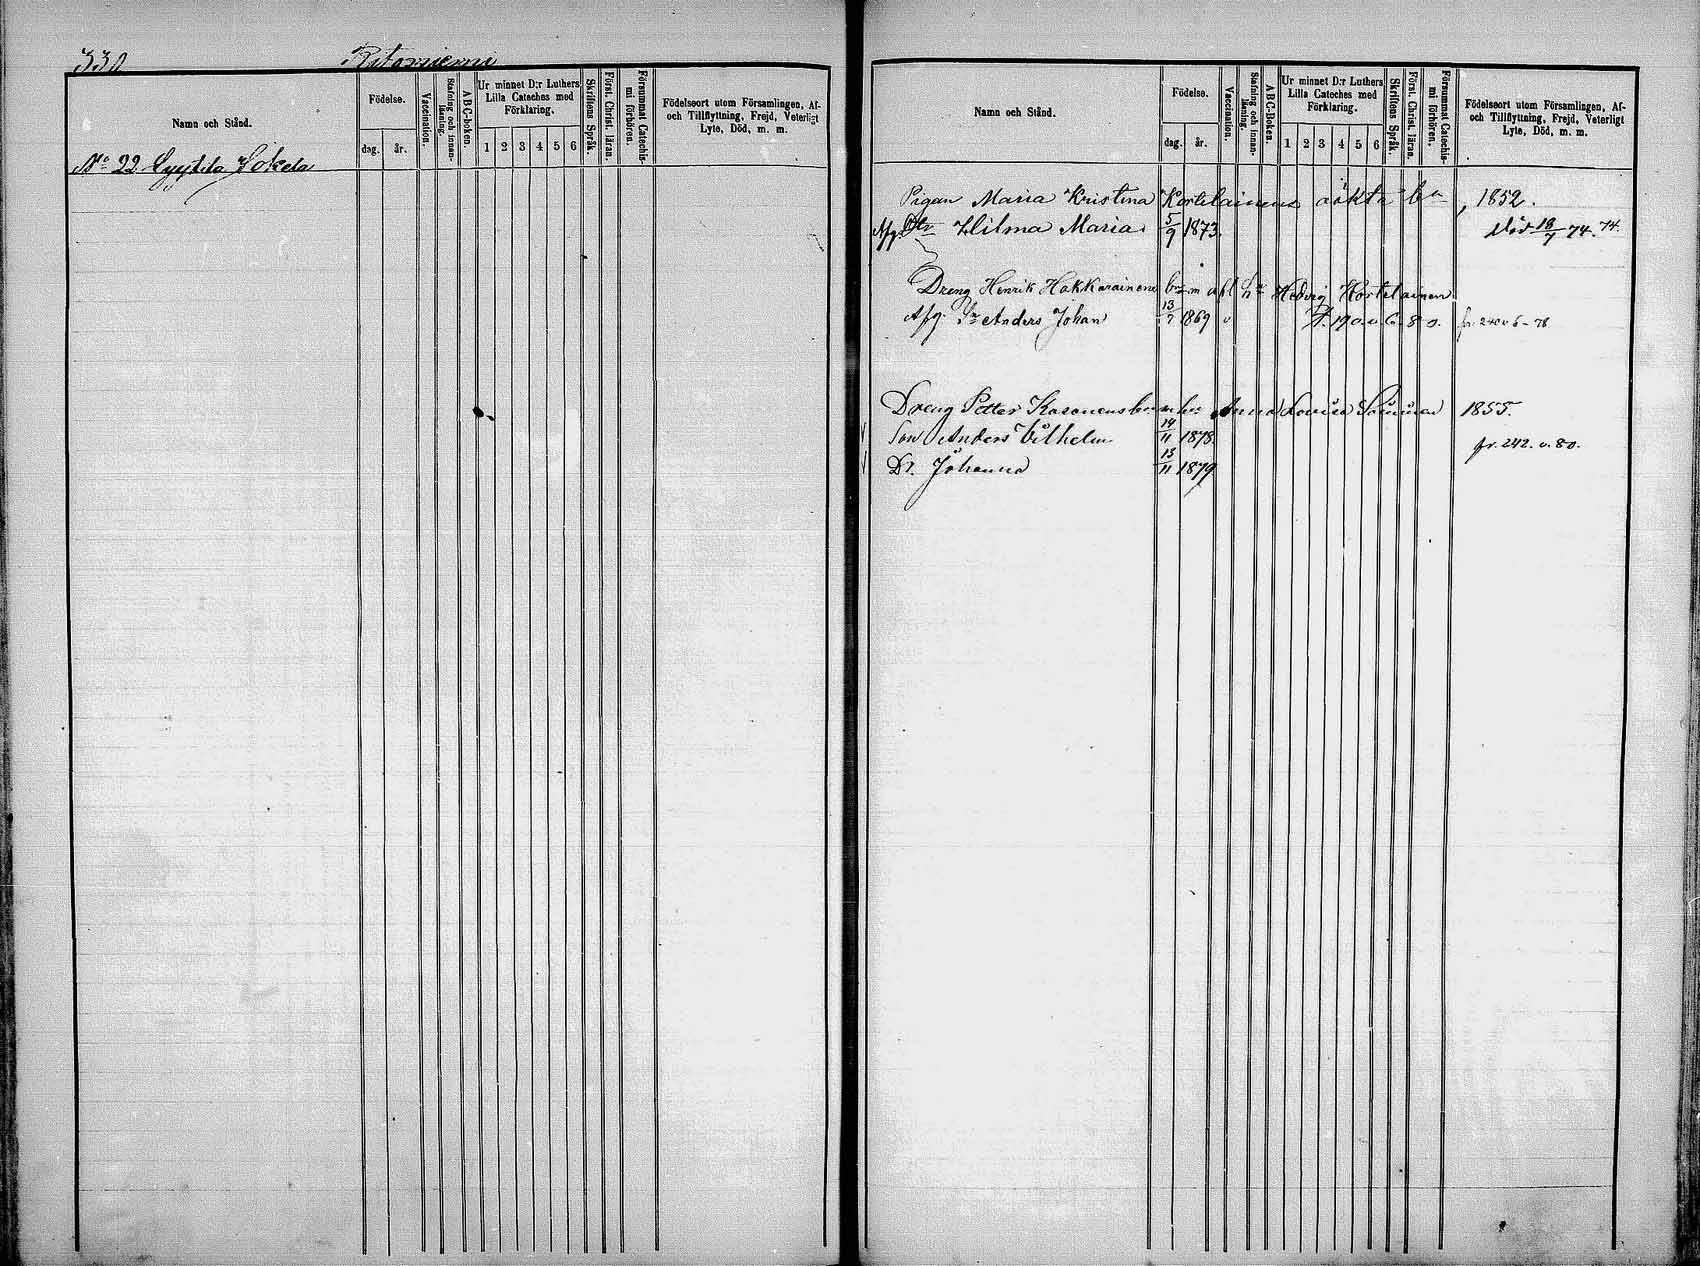 330 Ristoniemi
Namn och Stånd.
Födelse.
dag. år.
Vaccination.
Stafning och innan-läsning.
ABC-boken.
Ur minnet D:r Luthers Lilla Cateches med Förklaring.
1 2 3 4 5 6
Skriftens Språk.
Först. Christ. läran.
Försummat Catechis-mi förhören.
Födelseort utom Församlingen, Af- och Tillflyttning, Frejd, Veterligt Lyte, Död, m. m.
No 22
Namn och Stånd.
Födelse.
dag. år.
Vaccination.
Stafning och innan-läsning.
ABC-Boken.
Ur minnet D:r Luthers Lilla Cateches med Förklaring.
1 2 3 4 5 6
Skriftens Språk.
Först. Christ. läran.
Försummat Catechis-mi förhören.
Födelseort utom Församlingen, Af- och Tillflyttning, Frejd, Veterligt Lyte, Död, m. m.
Pigan Maria Kristina Kortelainens oäkta bn, 1852.
Afg. Dtr Hilma Maria 5/9 1873. död 18/7 74. 74.
Dreng Henrik Hakkarainens Hedvig Kortelainen
Afg. Sn Anders Johan 13/7 1869 v 19 fr. 240 v 6-78
Dreng Petter Kasonens Anna Lovisa 1855.
Son Anders Vilhelm 14/11 1878. fr. 242. v. 80.
D:r Johanna 13/11 1879